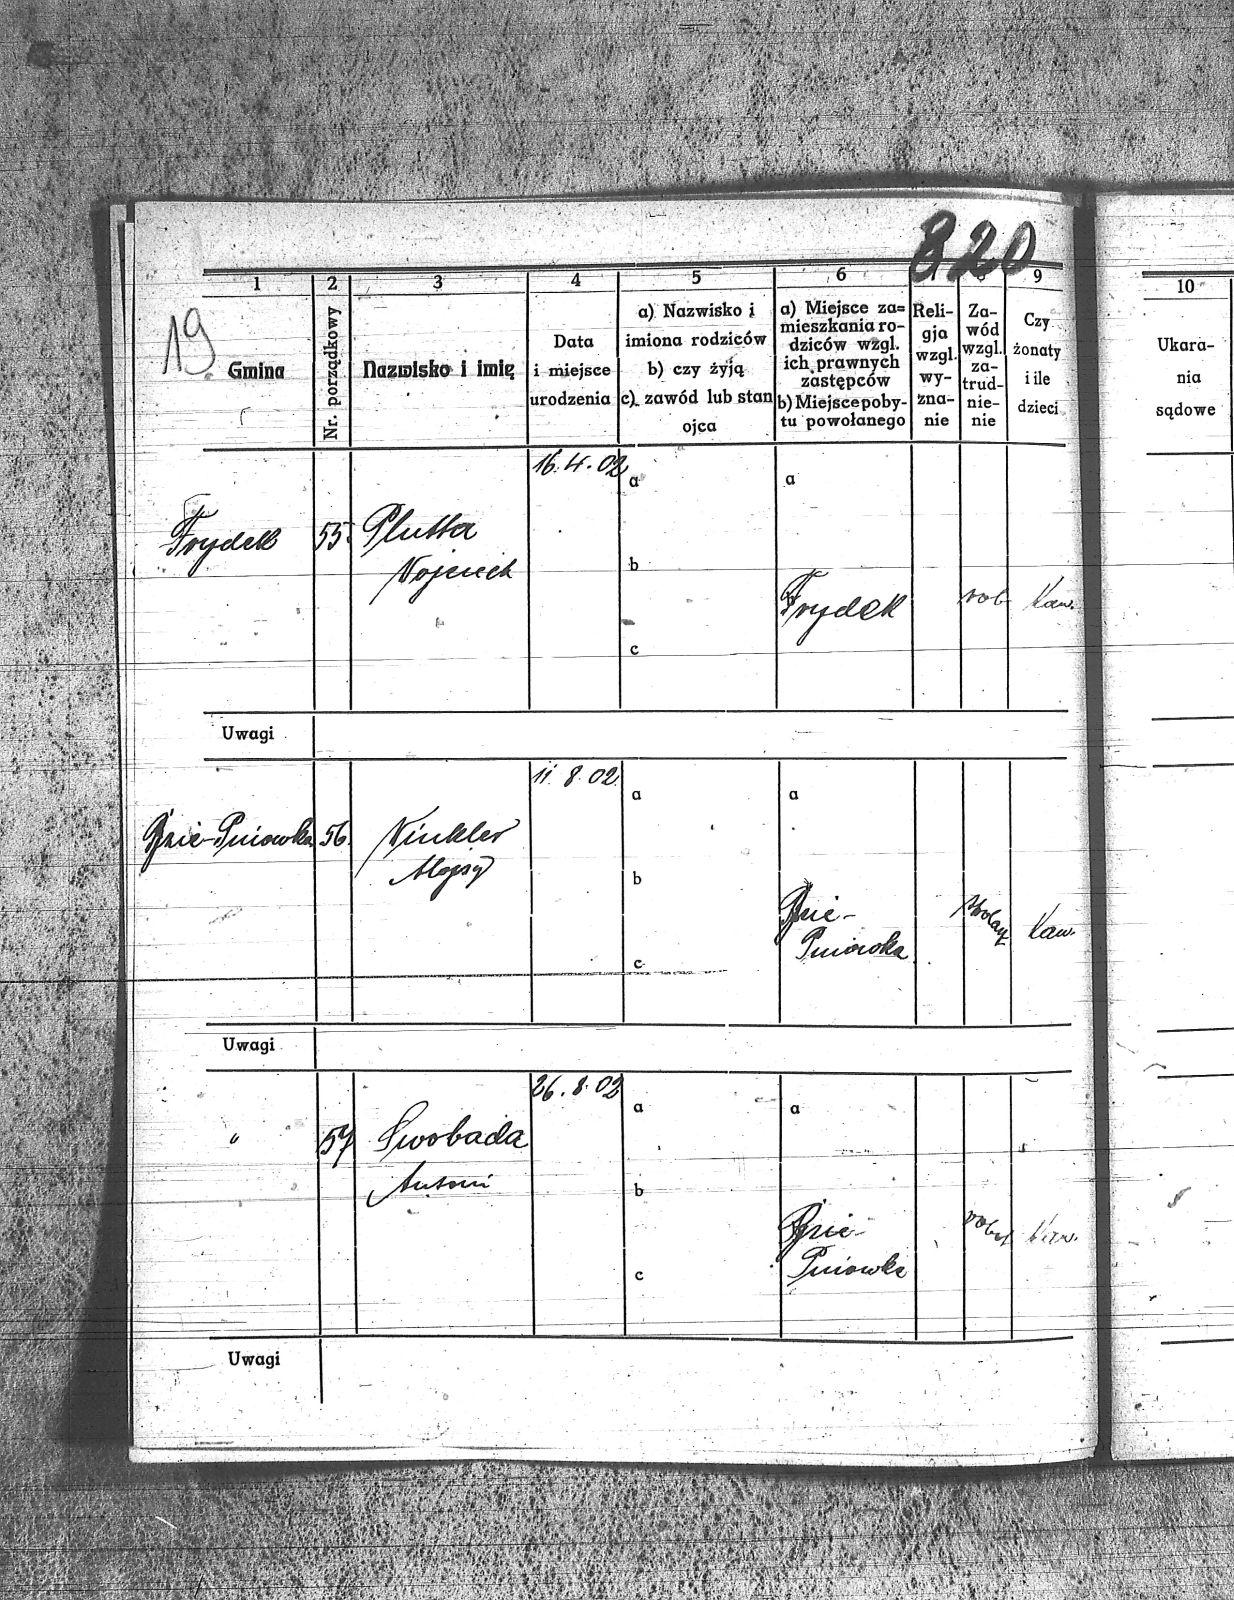 820
19
1 2 3 4 5 6 9
Gmina
Nr. porządkowy
Nazwisko i imię
Data
i miejsce
urodzenia
a) Nazwisko i
imiona rodziców
b) czy żyją
c) zawód lub stan
ojca
a) Miejsce za=
mieszkania ro-
dziców wzgl.
ich prawnych
zastępców
b) Miejsce poby-
tu powołanego
Reli-
gja
wzgl.
wy-
zna-
nie
Za-
wód
wzgl.
za-
trud-
nie-
nie
Czy
żonaty
i ile
dzieci
10
Ukara-
nia
sądowe
Frydek
55.
Plutta
Wojciech
16.4.02
a
b
c
a
Frydek
rob
Kaw.
Uwagi
56.
Winkler
Alojzy
11.8.02
a
b
c
a
Pniowka
Kaw.
Uwagi
"
57
Swoboda
Antoni
26.8.02
a
b
c
a
Pniowka
Kaw.
Uwagi